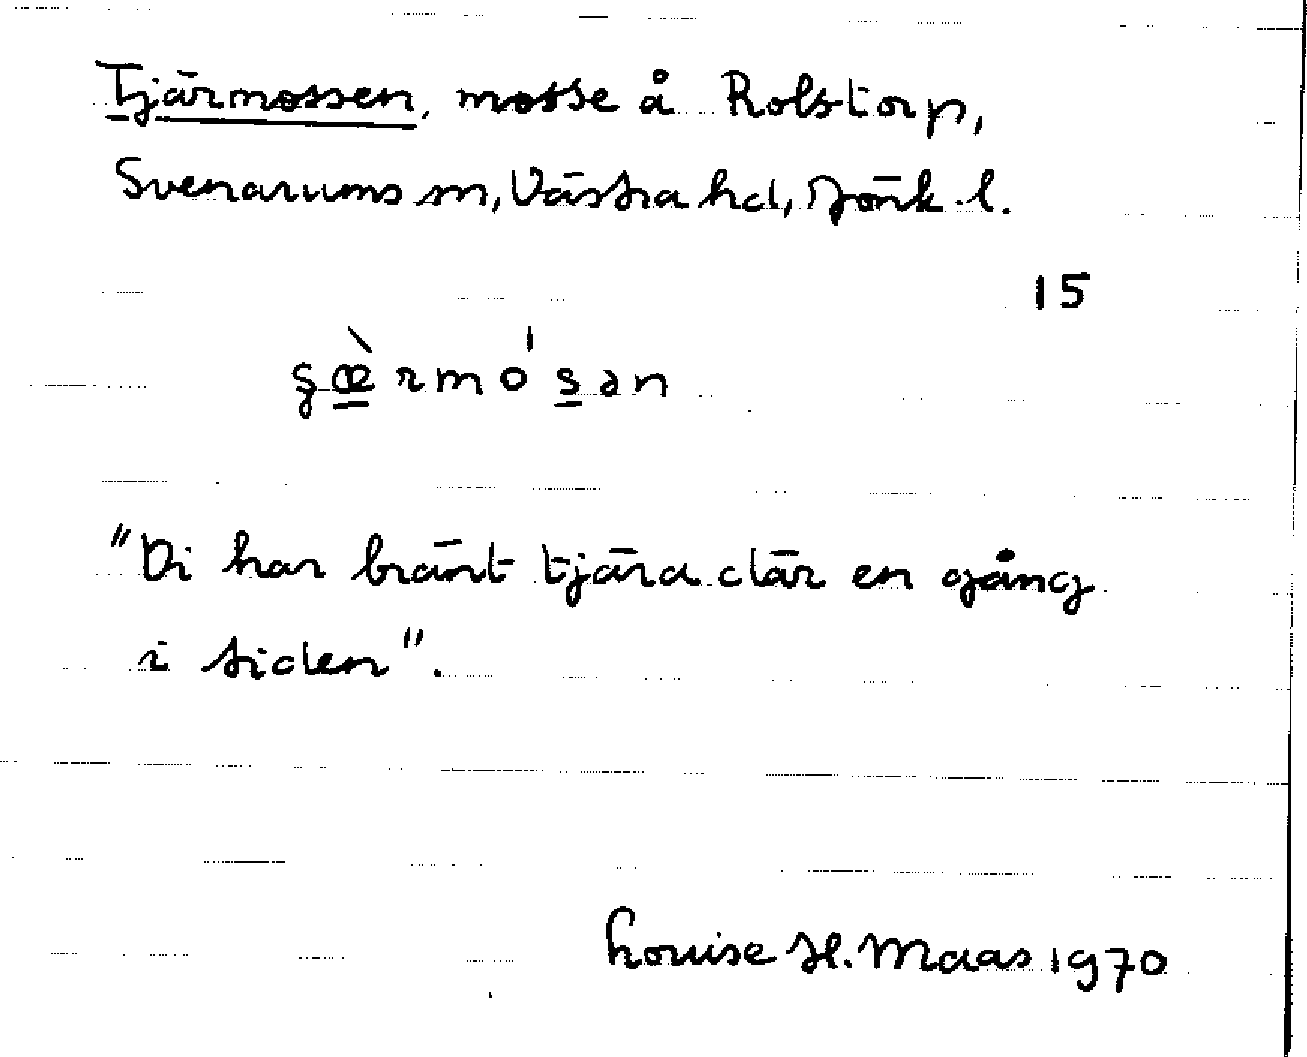 Tjärmossen, mosse å Rolstorp,
Svenarums sn, Västra hd, Jönk. l.
15
ʂæ̀rmó'sən
"Di har bränt tjära där en gång
i tiden".
Louise H. Maas 1970